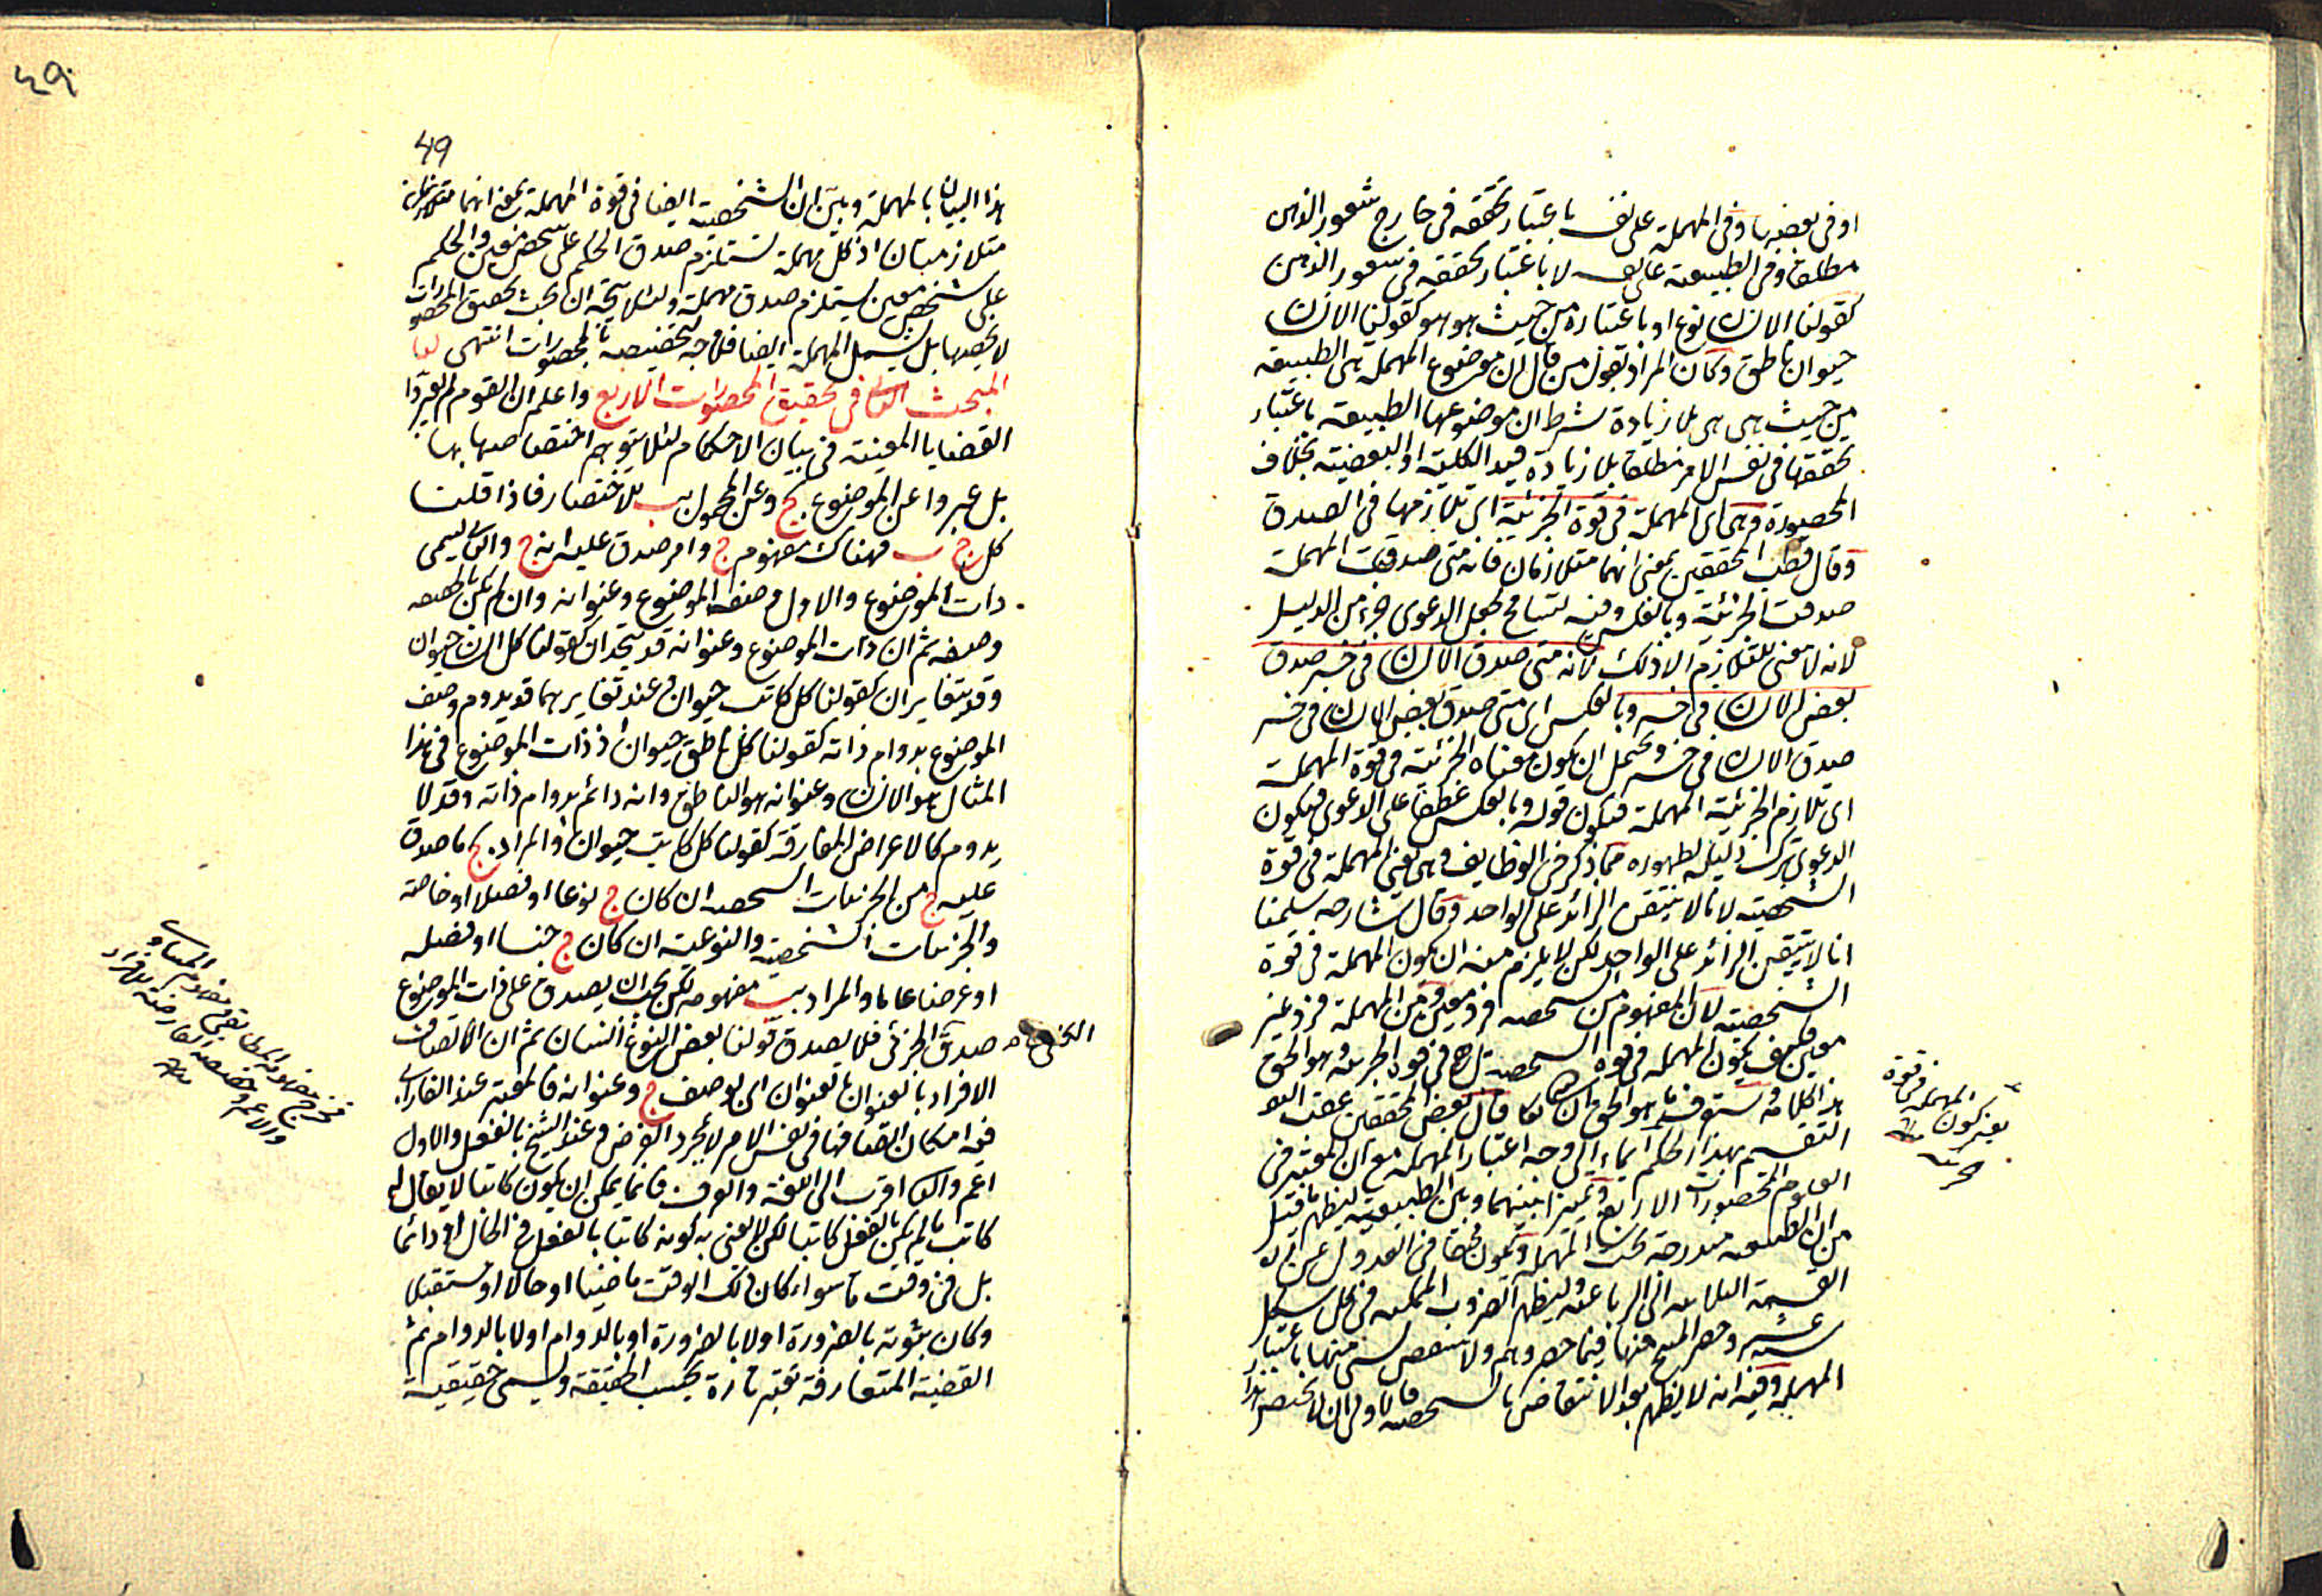 او في بعضها وفي المهملة على نفسه باعتبار تحققه في خارج شعور الذهن
مطلقا وفي الطبيعة عليه لا باعتبار تحققه في شعور الذهن
كقولنا الانسان نوع او باعتباره من حيث هو هو كقولنا الانسان
حيوان ناطق وكان المراد بقول من قال ان موضوع المهملة هى الطبيعة
من حيث هى هى بلا زيادة شرط ان موضوعها الطبيعة باعتبار
تحققها في نفس الامر مطلقا بلا زيادة قيد الكلية او البعضية بخلاف
المحصورة وهى اى المهملة في قوة الجزئية اى تلازمها في الصدق
وقال قطب المحققين بمعنى انهما متلازمان فانه متى صدقت المهملة
صدقت الجزئية وبالعكس وفيه تسامح لجعل الدعوى جزء من الدليل
لانه لا معنى للتلازم الا ذلك لانه متى صدق الانسان في خسر صدق
بعض الانسان في خسر وبالعكس اى متى صدق بعض الانسان في خسر
صدق الانسان في خسر ويحتمل ان يكون معناه الجزئية في قوة المهملة
اى تلازم الجزئية المهملة فيكون قوله وبالعكس عطفا على الدعوى فيكون
الدعوى ترك دليله لظهوره مما ذكر في الوظايف وهى يعنى المهملة في قوة
الشخصية لانا لا نتيقن الزائد على الواحد وقال شارحه سلمنا
انا لا نتيقن الزائد على الواحد لكن لا يلزم منه ان يكون المهملة في قوة
الشخصية لان المفهوم من الشخصية فرد معين ومن المهملة فرد غير
معين فكيف يكون المهملة في قوة الشخصية بل هى في قوة الجزئية وهو الحق
هذا كلامه وستوف ما هو الحق ان شا كما قال بعض المحققين عقب
التقسيم بهذا الحكم ايماء الى وجه اعتبار المهملة مع ان المعتبر في
العلوم المحصورات الاربع وتميزا بينهما وبين الطبيعية ليظهر ما قيل
من ان الطبيعية مندرجة تحت المهملة وتكون محقا في العدول عن
القسمة الثلاثية الى الرباعية وليظهر الضروب الممكنة في كل شكل
ستة عشر وحصر المنتج منها فيما حصروهم ولا ينتقص لشى منها باعتبار
المهملة وفيه انه لا يظهر بعد الانتقاض بالشخصية فالاولى ان لا يختص هذا
يعنى كون المهملة في قوة
الجزئية
منه
49
هذا البيان بالمهملة وبين ان الشخصية ايضا في قوة المهملة بمعنى انهما
متلازمتان اذ كل مهملة تستلزم صدق الحكم على شخص معين والحكم
على شخص معين يستلزم صدق مهملة ولئلا يتجه ان بحث تحقيق المحصورات
لا يخصها بل يشمل المهملة ايضا فلا وجه لتخصيصه بالمحصورات انتهى
المبحث الثانى في تحقيق المحصورات الاربع واعلم ان القوم لم يوردوا
القضايا المعينة في بيان الاحكام لئلا يتوهم اختصاصها بها
بل عبروا عن الموضوع بج وعن المحمول بب للاختصار فاذا قلنا
كل ج ب فهناك مفهوم ج وامر صدق عليه انه ج والثانى يسمى
ذات الموضوع والاول وصف الموضوع وعنوانه وان لم يكن بالحقيقة
وصفه ثم ان ذات الموضوع وعنوانه قد يتحدان كقولنا كل انسان حيوان
وقد يتغايران كقولنا كل كاتب حيوان وعند تغايرهما قد يدوم وصف
الموضوع بدوام ذاته كقولنا كل ناطق حيوان اذ ذات الموضوع في هذا
المثال هو الانسان وعنوانه هو الناطق وانه دائم بدوام ذاته وقد لا
يدوم كالاعراض المفارقة كقولنا كل كاتب حيوان والمراد بج ما صدق
عليه ج من الجزئيات الشخصية ان كان ج نوعا او فصلا او خاصة
والجزئيات الشخصية والنوعية ان كان ج جنسا او فصله
او عرضا عاما والمراد بب مفهومه لكن يجب ان يصدق على ذات الموضوع
صدق الجزئى فلا يصدق قولنا بعض النوع انسان ثم ان اتصاف
الافراد بالعنوان بالعنوان اى بوصف ج وعنوانه فالمعتبر عند الفارابى
فيه امكان اتصافها في نفس الامر لا بمجرد الفرض وعند الشيخ بالفعل والاول
اعم والثانى اقرب الى اللغة والعرف فانما يمكن ان يكون كاتبا لا يقال له
كاتب ما لم يكن بالفعل كاتبا لكن لا يعنى به كونه كاتبا بالفعل في الحال او دائما
بل في وقت ما سواء كان ذلك الوقت ماضيا او حالا او مستقبلا
وكان ثبوته بالضرورة او لا بالضرورة او بالدوام او لا بالدوام ثم
القضية المتعارفة تعتبر تارة بحسب الحقيقة ويسمى حقيقية